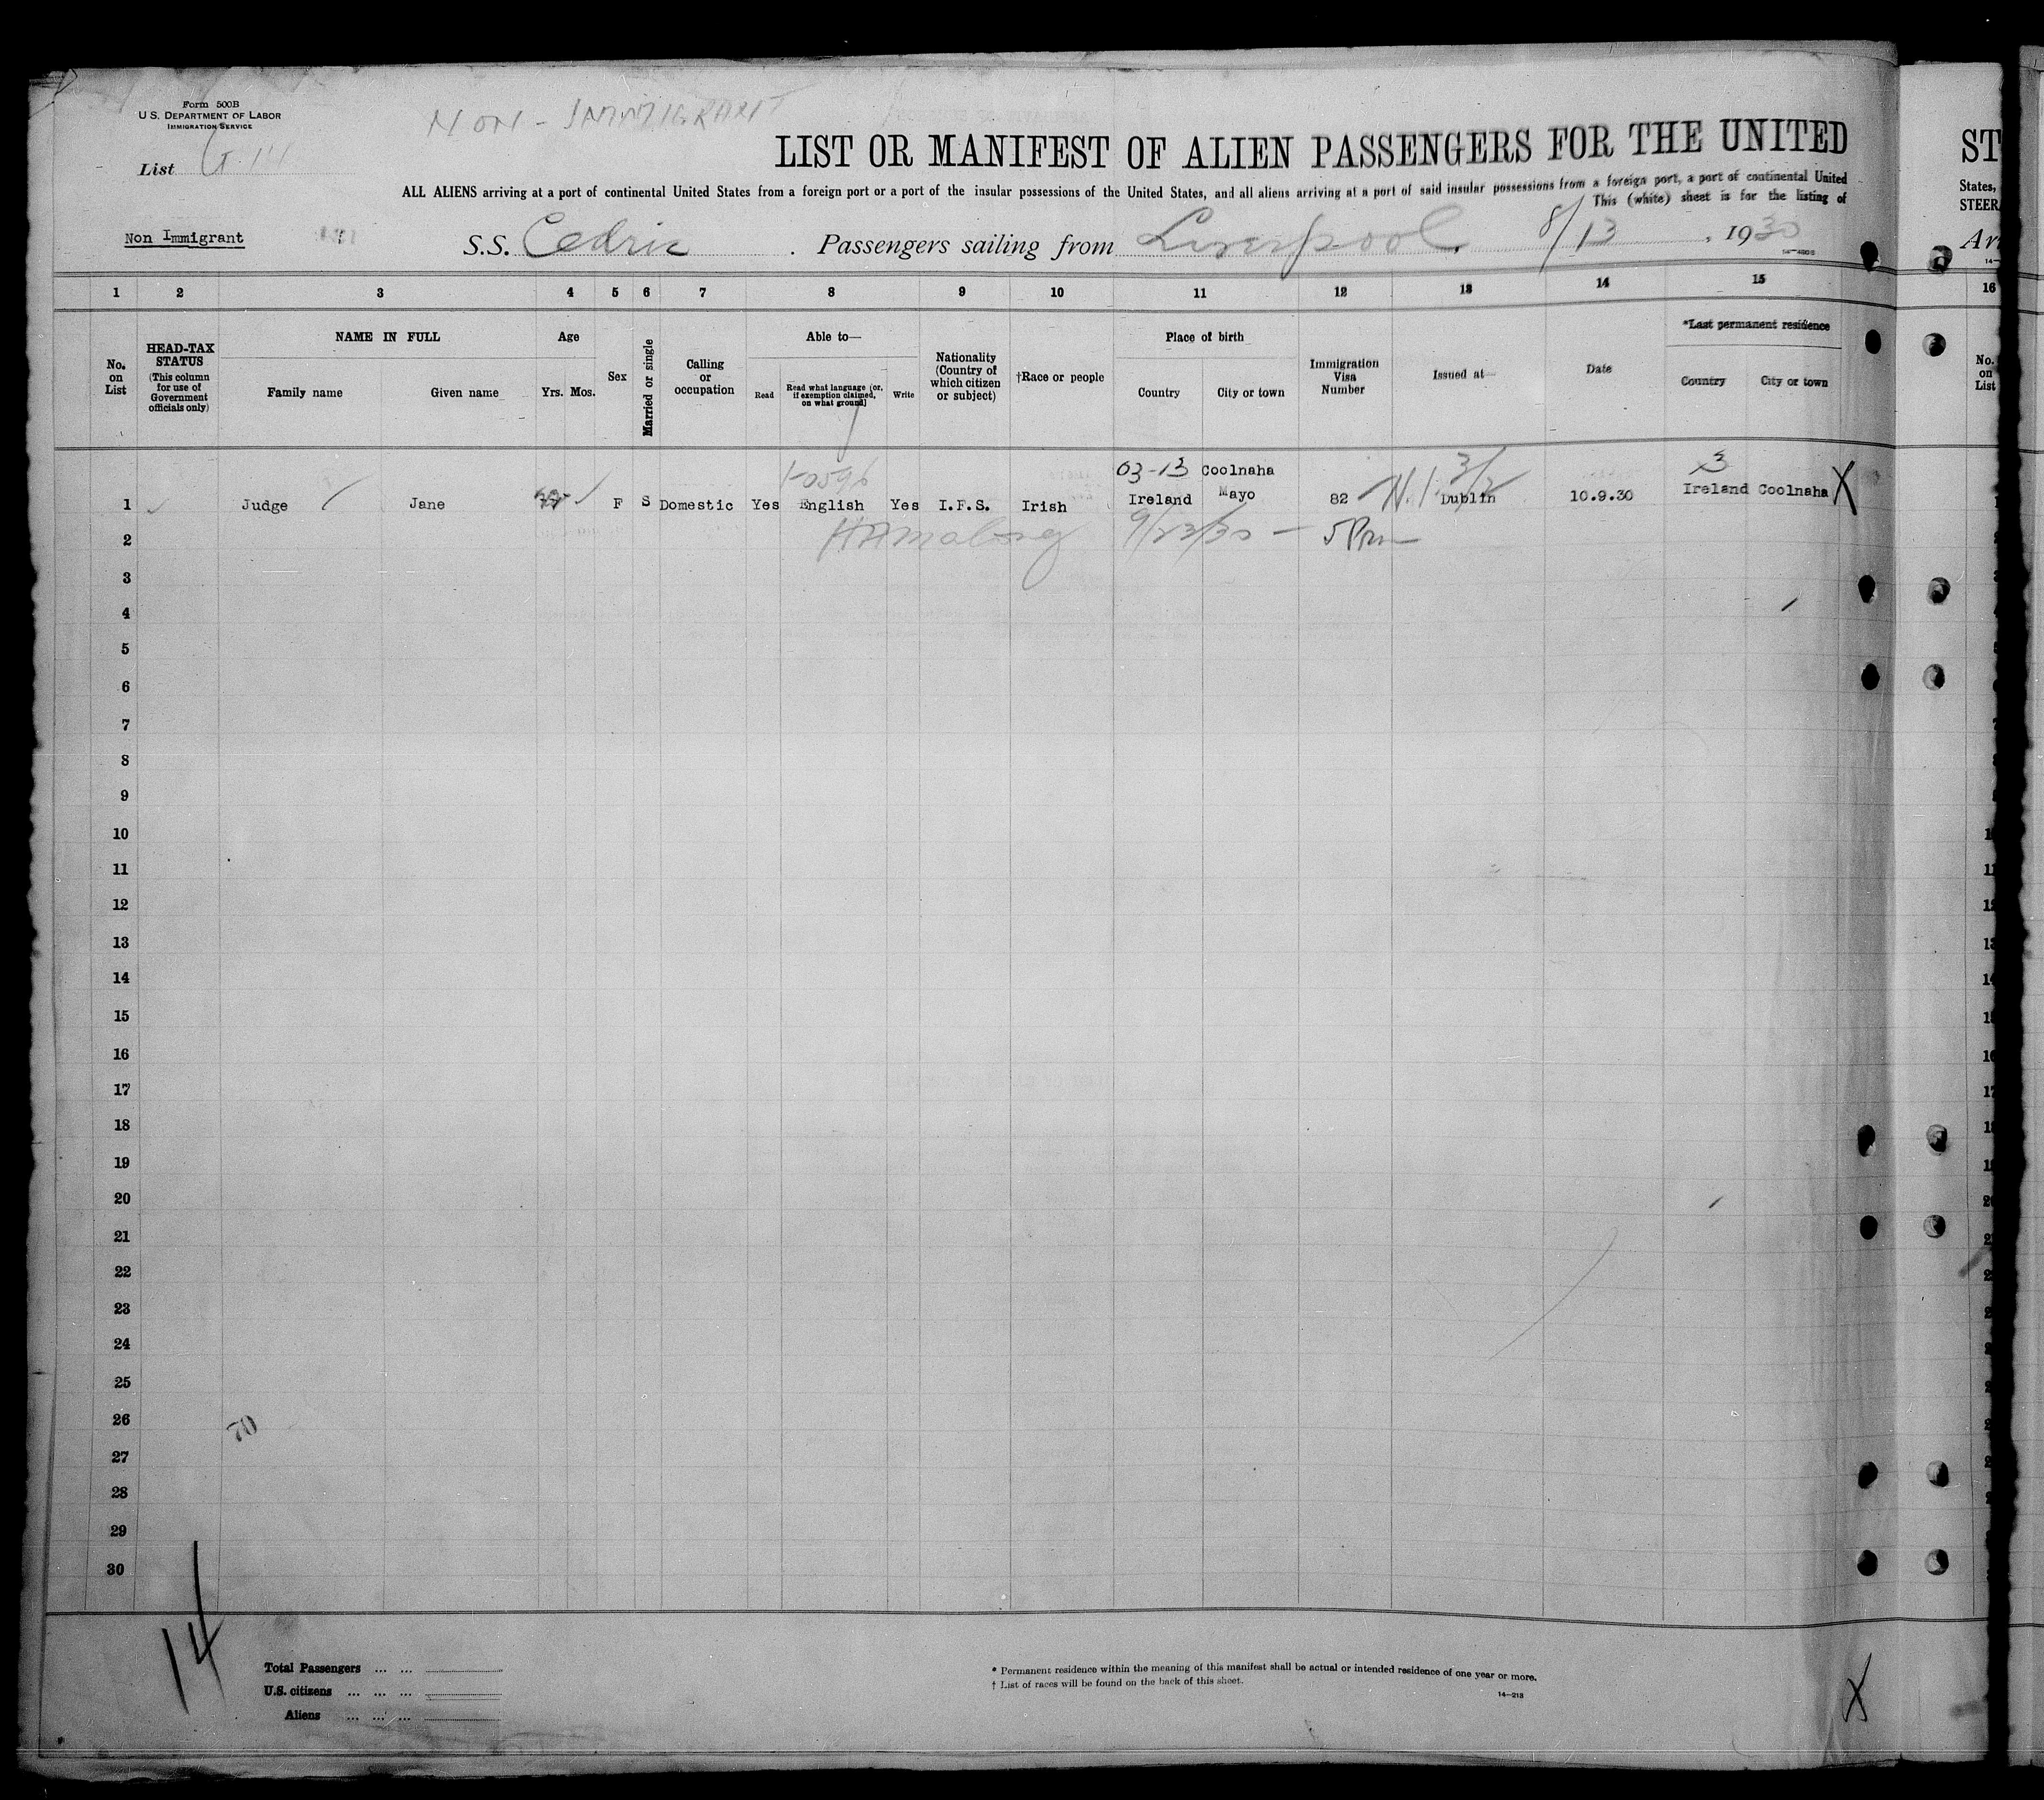 Form 500B
U.S. DEPARTMENT OF LABOR
IMMIGRATION SERVICE
NON-IMMIGRANT
List
LIST OR MANIFEST OF ALIEN PASSENGERS FOR THE UNITED
ALL ALIENS arriving at a port of continental United States from a foreign port or a port of the insular possessions of the United States, and all aliens arriving at a port of said insular possessions from a foreign port, a port of continental United
This (white) sheet is for the listing of
Non Immigrant
S.S. Cedric . Passengers sailing from Liverpool. 8/13 , 1930
1 2 3 4 5 6 7 8 9 10 11 12 13 14 15
No. on List
HEAD-TAX STATUS (This column for use of Government officials only)
NAME IN FULL
Family name Given name
Age
Yrs. Mos.
Sex
Married or single
Calling or occupation
Able to—
Read
Read what language (or, if exemption claimed, on what ground)
Write
Nationality (Country of which citizen or subject)
†Race or people
Place of birth
Country City or town
Immigration Visa Number
Issued at—
Date
*Last permanent residence
Country City or town
03-13 Coolnaha 3/2 3
1 Judge Jane F S Domestic Yes English Yes I.F.S. Irish Ireland Mayo 82 Dublin 10.9.30 Ireland Coolnaha X
2 9/23/30 — 5 Pm
3
4
5
6
7
8
9
10
11
12
13
14
15
16
17
18
19
20
21
22
23
24
25
26
70
27
28
29
30
14
Total Passengers ... ...
U.S. citizens ... ... ...
Aliens ... ... ...
* Permanent residence within the meaning of this manifest shall be actual or intended residence of one year or more.
† List of races will be found on the back of this sheet.
14—213
X
ST
States,
STEER
Ar
16
No. on List